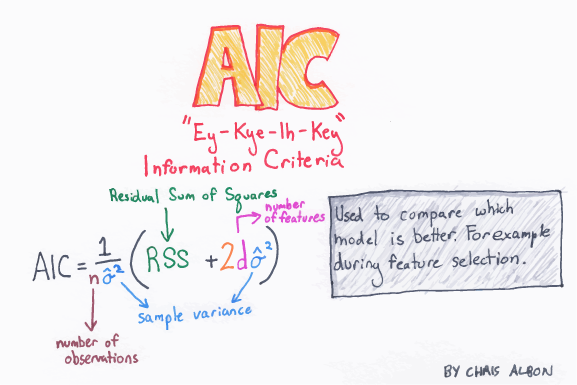 AIC
"Ey-Kye-Ih-Key"
Information Criteria
Residual Sum of Squares
number
of features
AIC = 1/nσ̂² (RSS + 2dσ̂²)
sample variance
number of
observations
Used to compare which
model is better. For example
during feature selection.
BY CHRIS ALBON